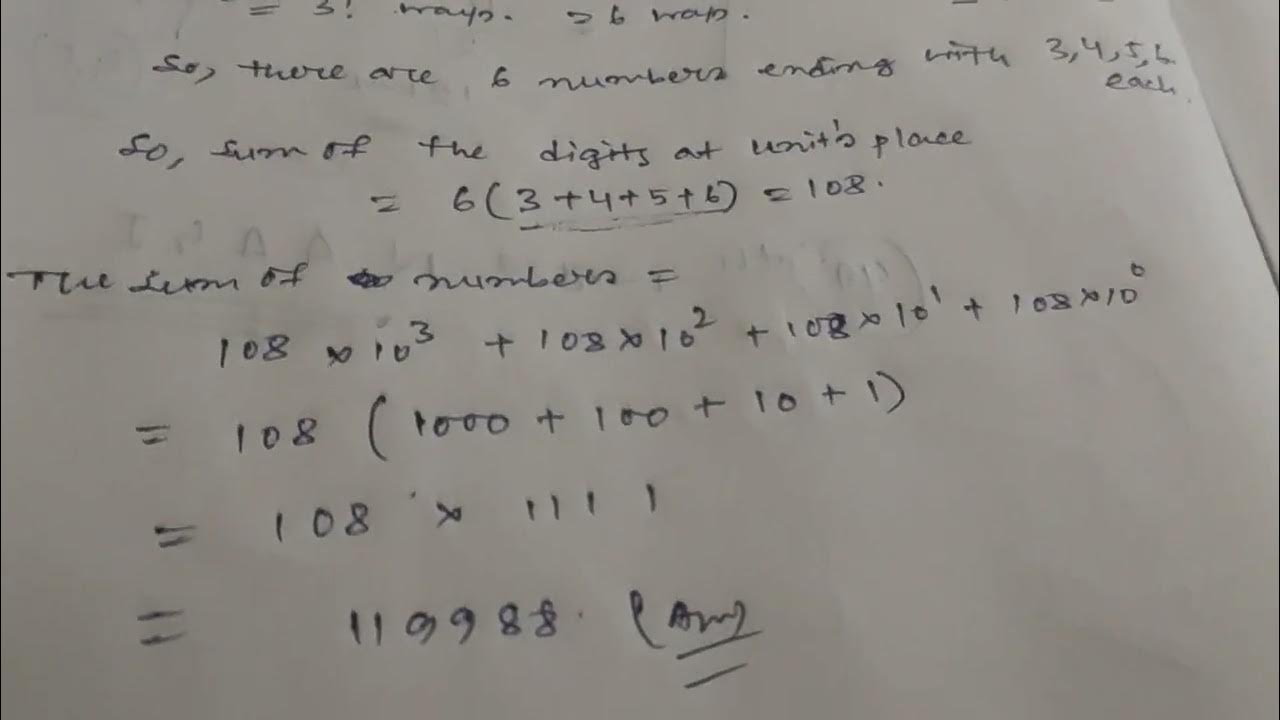 = 3! ways. = 6 ways.
So, there are 6 numbers ending with 3,4,5,6
each.
So, sum of the digits at unit's place
= 6(3+4+5+6) = 108.
The sum of numbers =
108 × 10³ + 108×10² + 108×10¹ + 108×10⁰
= 108 (1000 + 100 + 10 + 1)
= 108 × 1111
= 119988. (Ans)